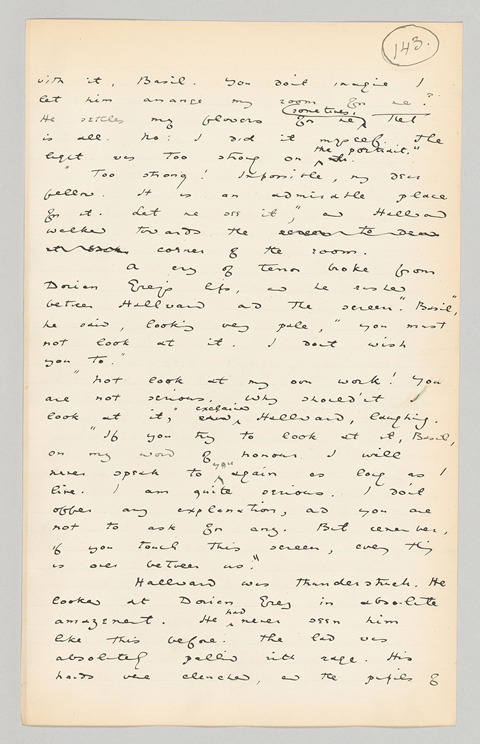 143.
with it, Basil. You don't imagine I
let him arrange my room for me?
sometimes.
He settles my flowers for me, that
is all. No: I did it myself. The
the portrait."
light was too strong on
"Too strong! Impossible, my dear
fellow. It is an admirable place
for it. Let me see it", and Hallward
walked towards the
corner of the room.
A cry of terror broke from
Dorian Gray's lips, and he rushed
between Hallward and the screen. "Basil",
he said, looking very pale, "you must
not look at it. I don't wish
you to."
"Not look at my own work! You
are not serious. Why shouldn't I
exclaimed
look at it," Hallward, laughing.
"If you try to look at it, Basil,
on my word of honour I will
you
never speak to again as long as I
live. I am quite serious. I don't
offer any explanation, and you are
not to ask for any. But remember,
if you touch this screen, everything
is over between us."
Hallward was thunderstruck. He
looked at Dorian Gray in absolute
had
amazement. He never seen him
like this before. The lad was
absolutely pallid with rage. His
hands were clenched, and the pupils of